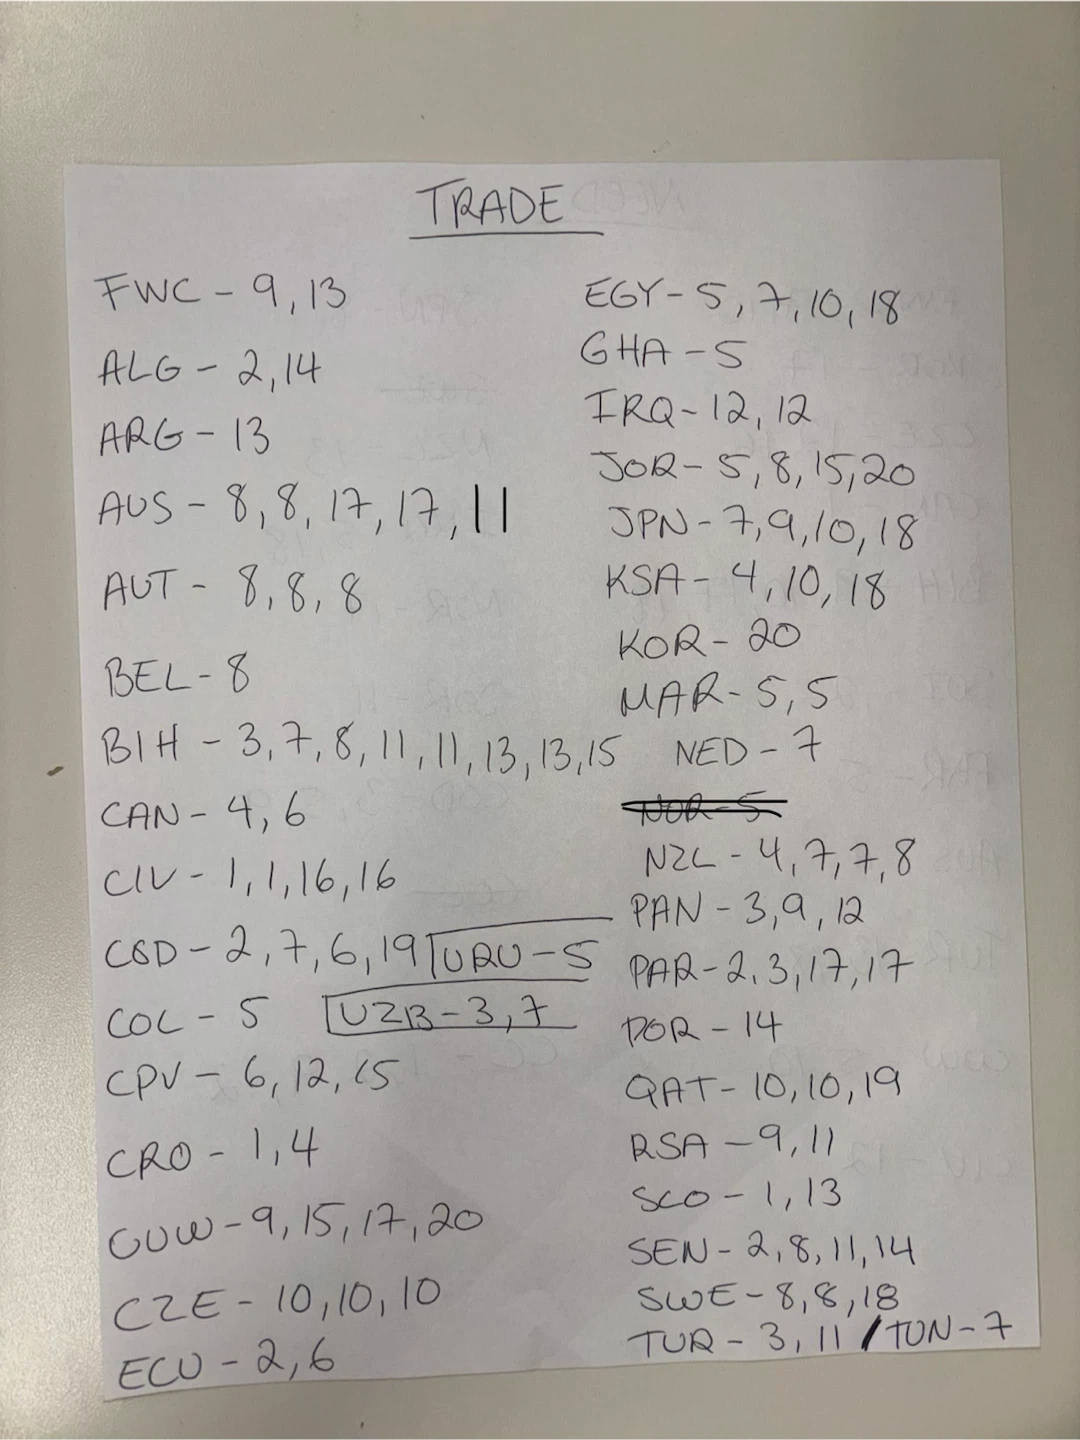 TRADE
FWC - 9, 13
ALG - 2, 14
ARG - 13
AUS - 8, 8, 17, 17, 11
AUT - 8, 8, 8
BEL - 8
BIH - 3, 7, 8, 11, 11, 13, 13, 15
CAN - 4, 6
CIV - 1, 1, 16, 16
COD - 2, 7, 6, 19
URU - 5
COL - 5
UZB - 3, 7
CPV - 6, 12, 15
CRO - 1, 4
CUW - 9, 15, 17, 20
CZE - 10, 10, 10
ECU - 2, 6
EGY - 5, 7, 10, 18
GHA - 5
IRQ - 12, 12
JOR - 5, 8, 15, 20
JPN - 7, 9, 10, 18
KSA - 4, 10, 18
KOR - 20
MAR - 5, 5
NED - 7
NOR - 5
NZL - 4, 7, 7, 8
PAN - 3, 9, 12
PAR - 2, 3, 17, 17
POR - 14
QAT - 10, 10, 19
RSA - 9, 11
SCO - 1, 13
SEN - 2, 8, 11, 14
SWE - 8, 8, 18
TUR - 3, 11 / TUN - 7